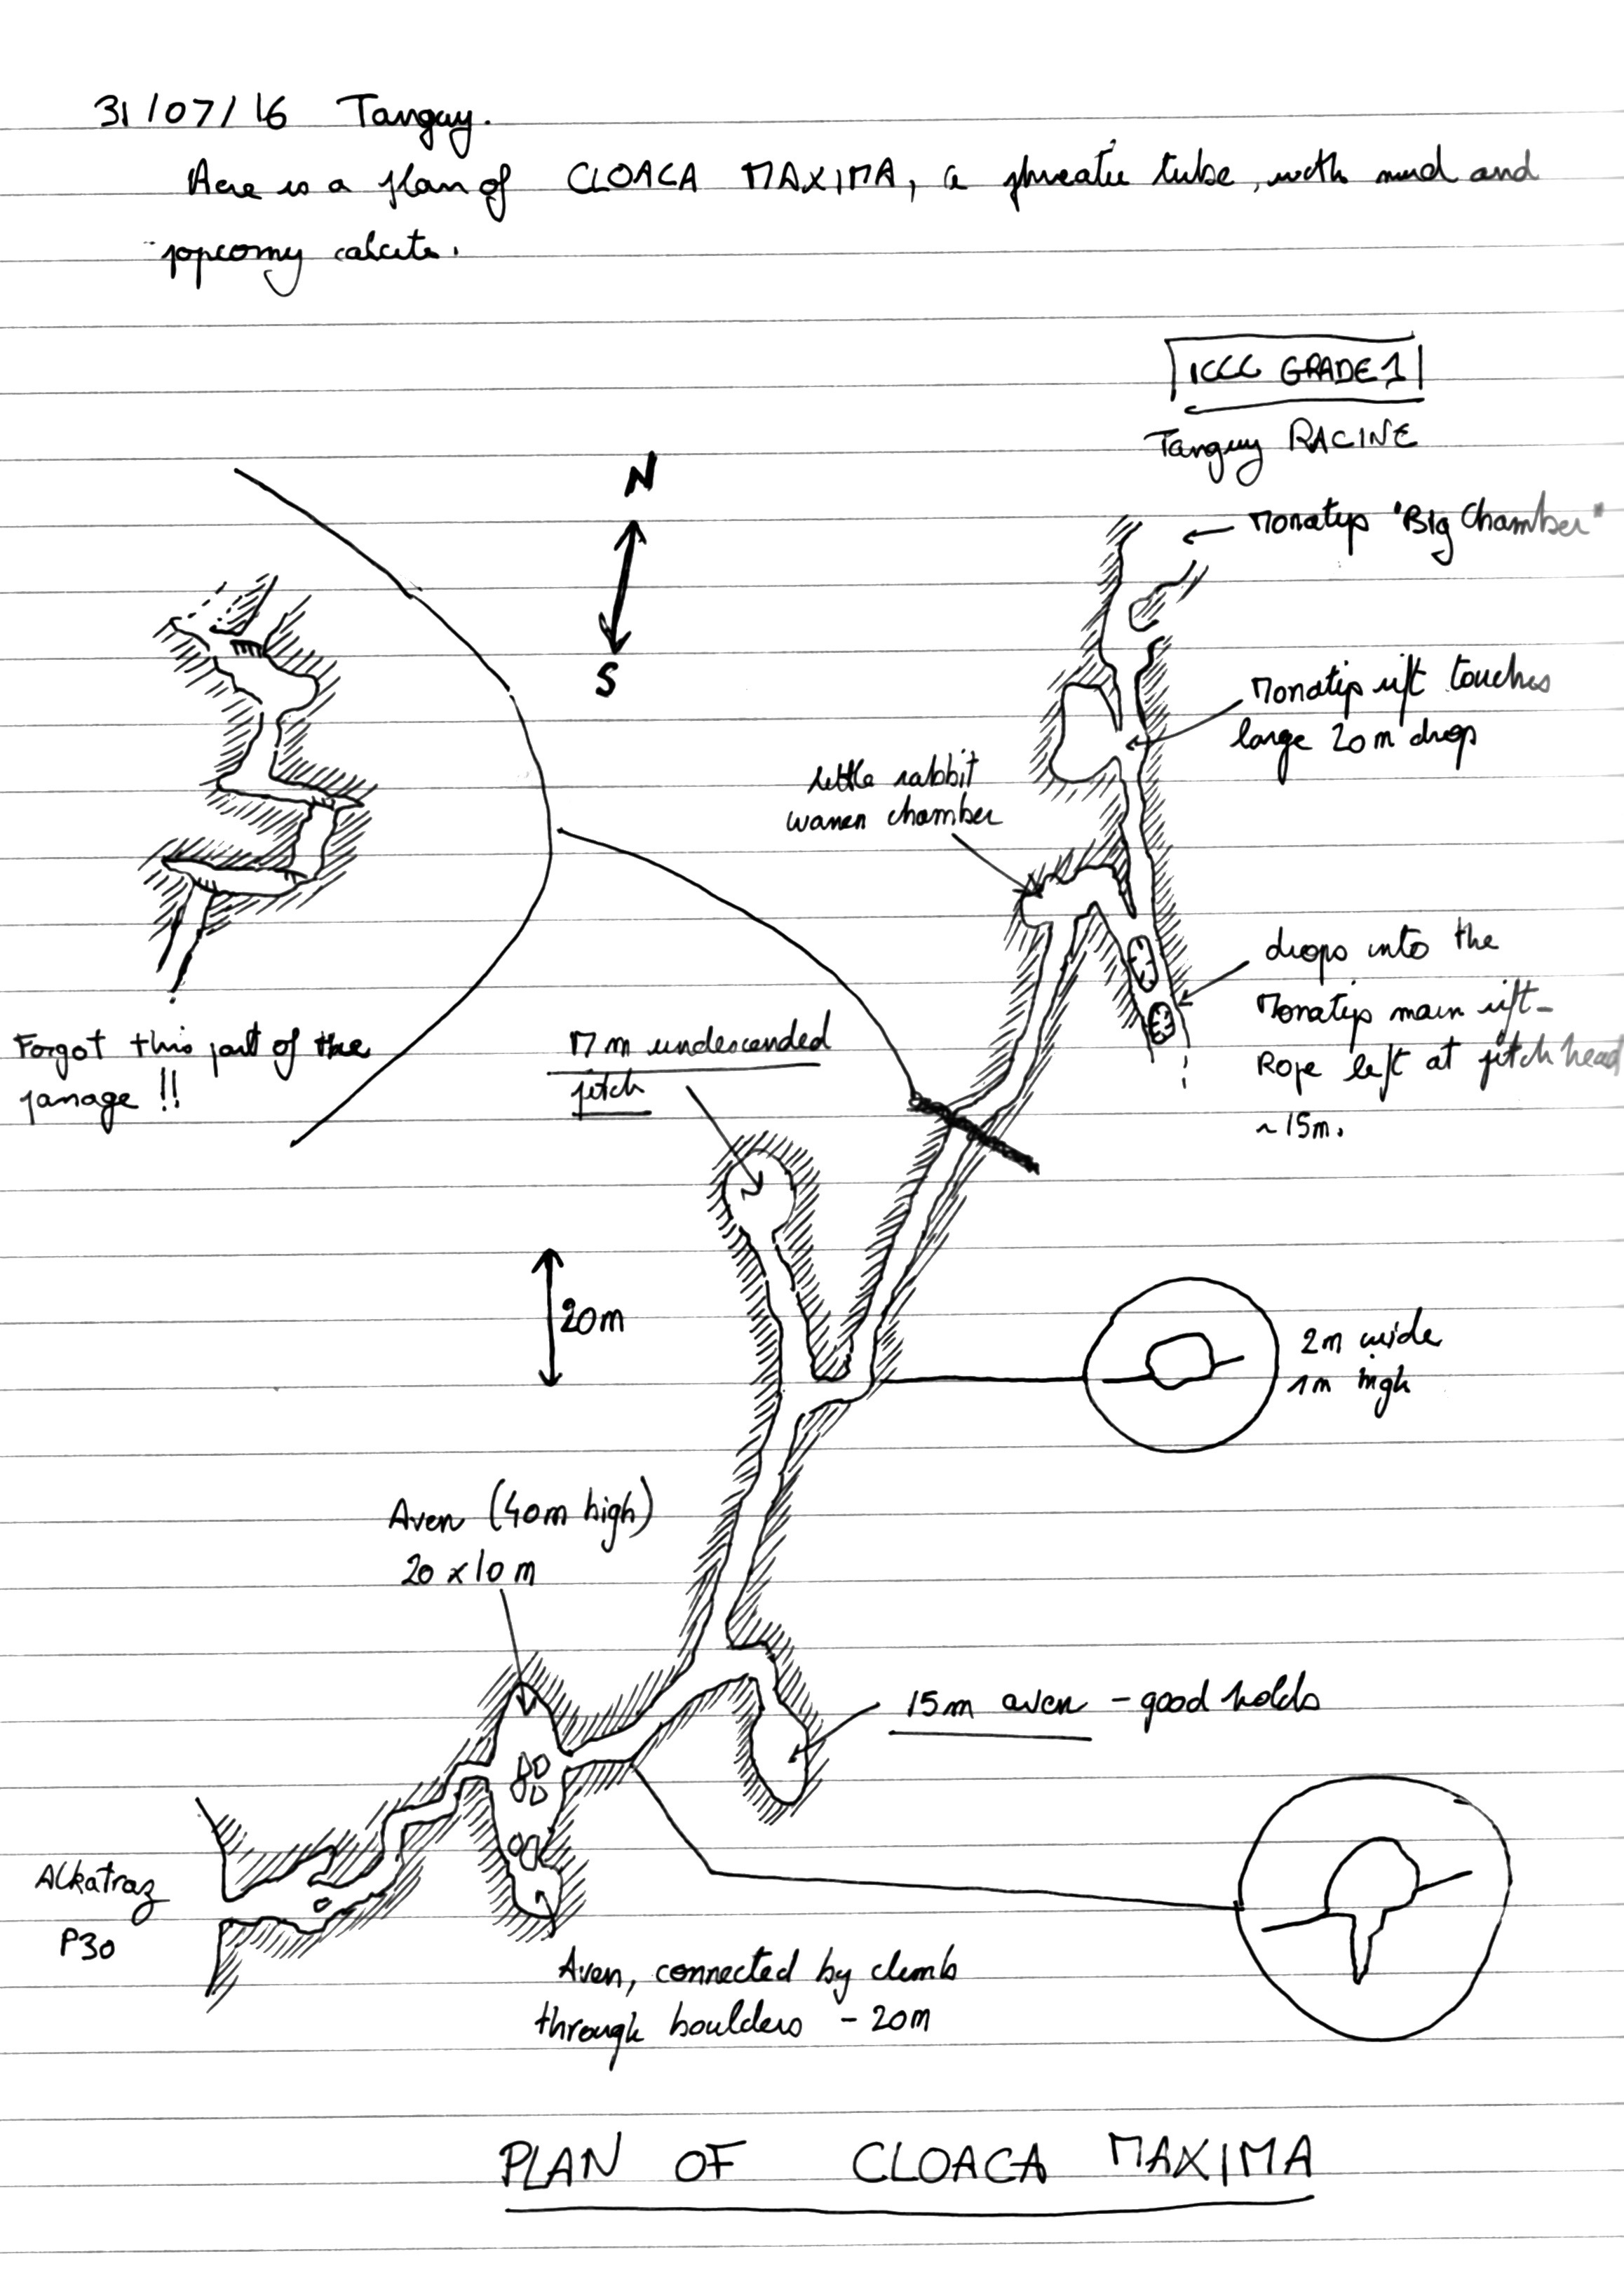 31/07/16 Tanguy.
Here is a plan of CLOACA MAXIMA, a phreatic tube, with mud and
popcorny calcite.
ICCC GRADE 1
Tanguy RACINE
N
S
Monatip "Big Chamber"
Monatip rift touches
large 20m drop
little rabbit
warren chamber
drops into the
Monatip main rift-
Rope left at pitch head
~15m.
Forgot this part of the
passage !!
17m undescended
pitch
20m
2m wide
1m high
Aven (40m high)
20 x 10 m
15m aven - good holds
Alkatraz
P30
Aven, connected by climb
through boulders - 20m
PLAN OF CLOACA MAXIMA